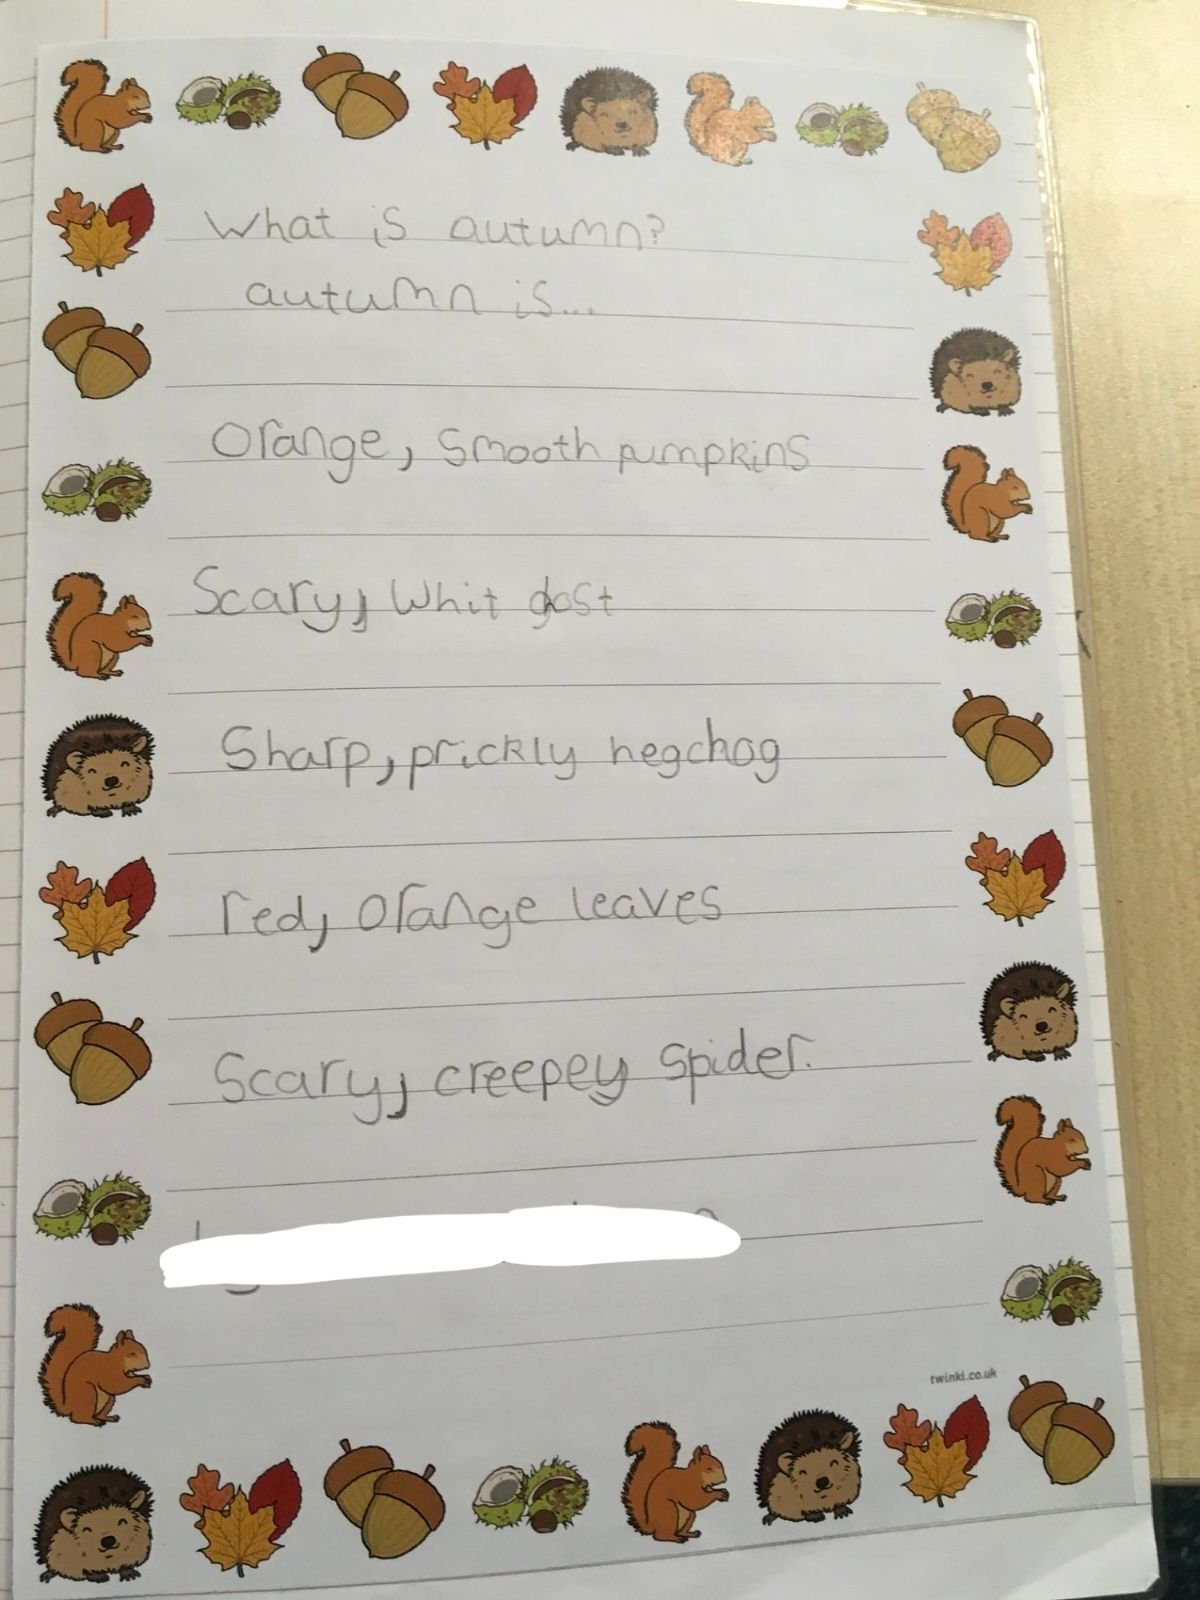 What is autumn?
autumn is...
Orange, Smooth pumpkins
Scary, Whit ghost
Sharp, prickly hegchog
red, orange leaves
Scary, creepey spider.
twinkl.co.uk